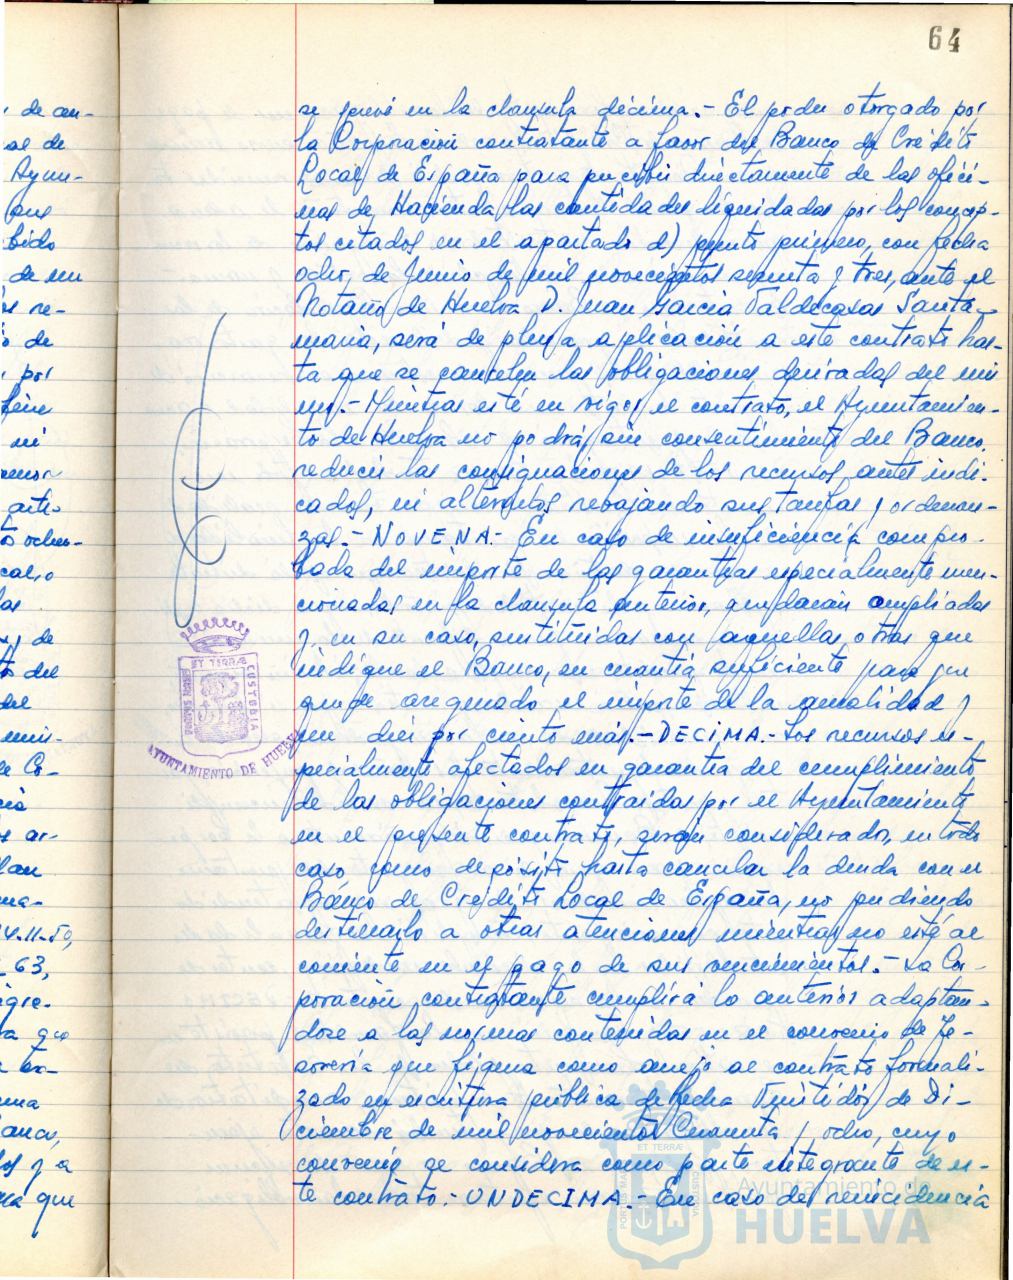 64
se prevé en la clausula décima.- El poder otorgado por
la Corporación contratante a favor del Banco de Crédito
Local de España para percibir directamente de las ofici-
nas de Hacienda las cantidades liquidadas por los concep-
tos citados en el apartado d) punto primero, con fecha
ocho, de Junio de mil novecientos sesenta y tres, ante el
Notario de Huelva D. Juan Garcia Valdecasas Santa-
maria, será de plena aplicación a este contrato has-
ta que se cancelen las obligaciones derivadas del mis
mo.- Mientras esté en vigor el contrato, el Ayuntamien-
to de Huelva no podrá, sin consentimiento del Banco,
reducir las consignaciones de los recursos antes indi-
cados, ni alterarlos rebajando sus tarifas y ordenan-
zas.- NOVENA.- En caso de insuficiencia compro-
bada del importe de las garantias especialmente men-
cionadas en la clausula anterior, quedarán ampliadas
y en su caso, sustituidas con aquellas otras que
indique el Banco, en cuantia suficiente para que
quede asegurado el importe de la anualidad y
un diez por ciento más.- DECIMA.- Los recursos es-
pecialmente afectados en garantia del cumplimiento
de las obligaciones contraidas por el Ayuntamiento
en el presente contrato, serán considerados, en todo
caso como depósito hasta cancelar la deuda con el
Banco de Crédito Local de España, no pudiendo
destinarlo a otras atenciones mientras no esté al
corriente en el pago de sus vencimientos.- La Cor-
poración contratante cumplirá lo anterior adaptan-
dose a las normas contenidas en el convenio de Te-
sorería que figura como anejo al contrato formali-
zado en escritura pública de fecha Veintidós de Di-
ciembre de mil novecientos Cuarenta y ocho, cuyo
convenio se considera como parte integrante de es-
te contrato.- UNDECIMA.- En caso de reincidencia
ET TERRÆ
CUSTODIA
AYUNTAMIENTO DE HUELVA
Ayuntamiento de
HUELVA